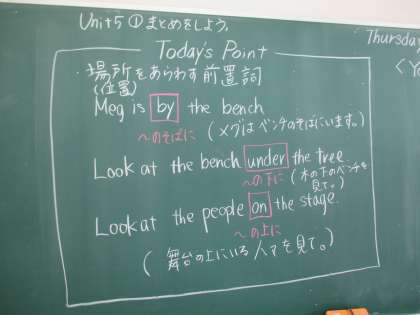 Unit5 ① まとめをしよう。
Today's Point
・場所をあらわす前置詞
(位置)
Meg is by the bench
〜のそばに (メグはベンチのそばにいます。)
Look at the bench under the tree.
〜の下に (木の下のベンチを見て。)
Look at the people on the stage.
〜の上に
(舞台の上にいる人々を見て。)
Thursday